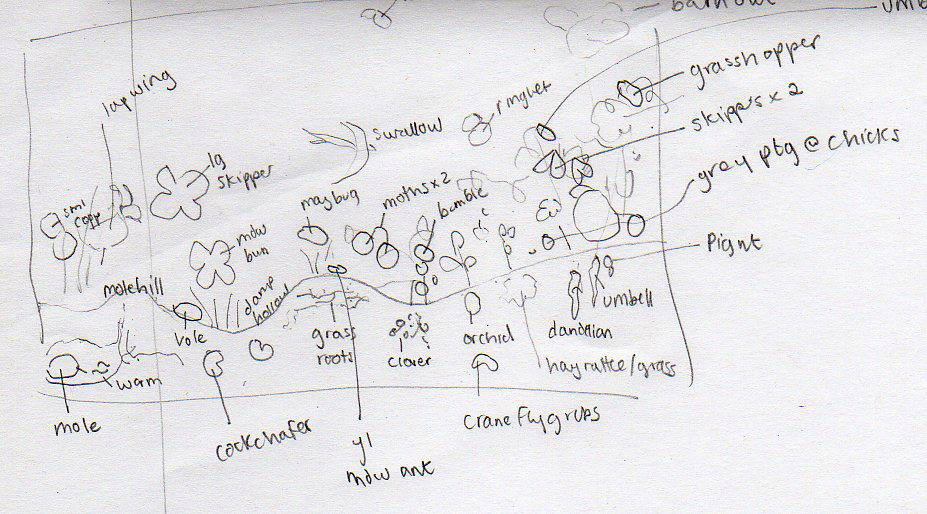 barn owl
umb
grasshopper
lapwing
ringlet
swallow
skippers x 2
lg
skipper
grey ptg @ chicks
maybug
moths x 2
bumble
sml
copp
mdw
bun
pignt
molehill
vole
damp
hollow
grass
roots
clover
orchid
dandelion
umbell
hayrattle/grass
worm
mole
cockchafer
yl
mdw ant
Crane fly grubs